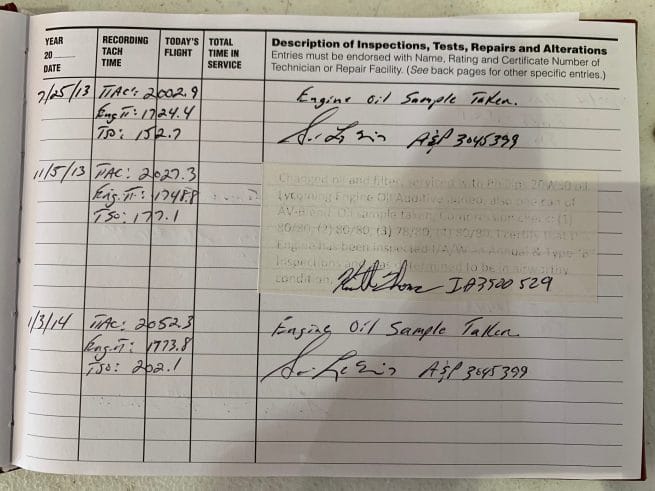 YEAR
20
DATE
RECORDING
TACH
TIME
TODAY'S
FLIGHT
TOTAL
TIME IN
SERVICE
Description of Inspections, Tests, Repairs and Alterations
Entries must be endorsed with Name, Rating and Certificate Number of
Technician or Repair Facility. (See back pages for other specific entries.)
7/25/13 TTAC: 2002.9 Engine Oil Sample Taken.
Eng TT: 1724.4
TSO: 152.7 A&P 3045399
11/5/13 TTAC: 2027.3 Changed oil and filter, serviced with Phillips 20W50 oil
Eng. TT: 1748.8 Lycoming Engine Oil Additive added, also one can of
TSO: 177.1 Oil sample taken, Compression check: (1)
80/80, (2) 80/80, (3) 78/80, (4) 80/80. I certify that
Engine has been inspected I/A/W an Annual & Type
Inspections and was determined to be in airworthy
condition. IA3500529
1/3/14 TTAC: 2052.3 Engine Oil Sample Taken.
Eng. TT: 1773.8
TSO: 202.1 A&P 3045399